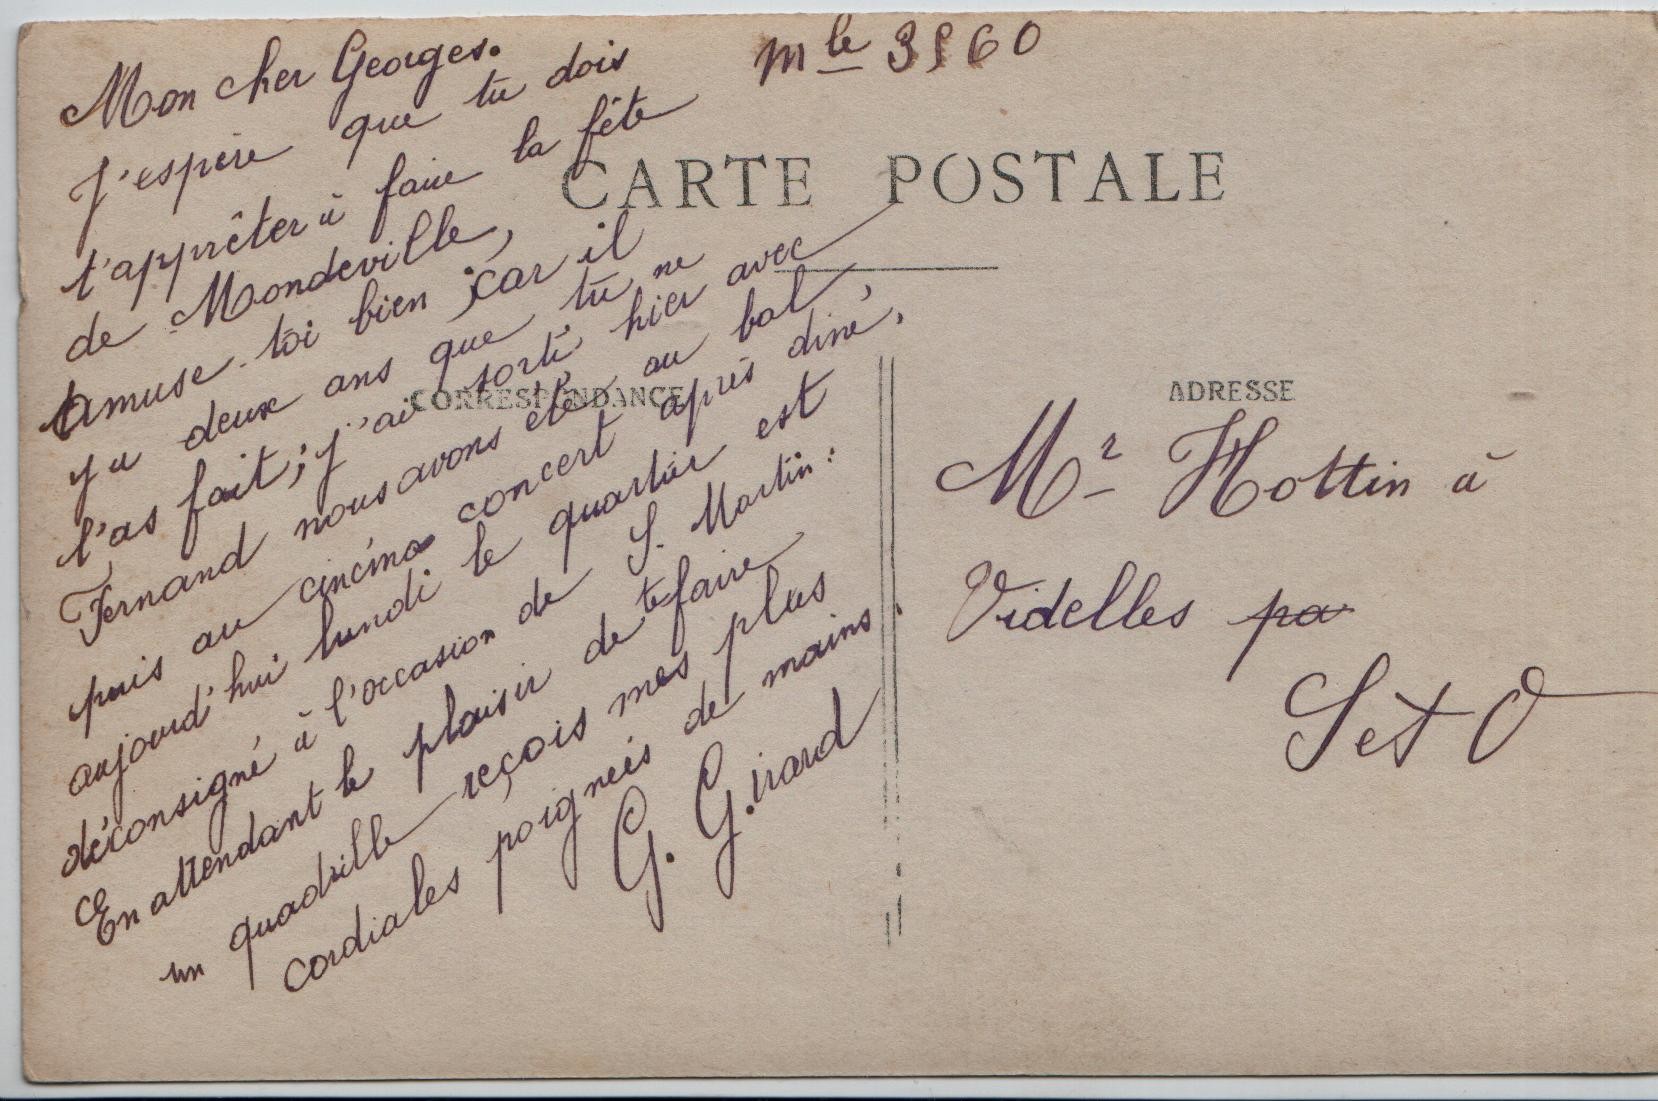 Mon cher Georges.
J'espère que tu dois
t'apprêter à faire la fête
de Mondeville,
Amuse-toi bien, car il
y a deux ans que tu ne
l'as fait; j'ai sorti hier avec
Fernand nous avons été au bal,
puis au cincéma concert après diné,
aujourd'hui lundi le quartier est
déconsigné à l'occasion de S. Martin:
En attendant le plaisir de te faire
un quadrille reçois mes plus
cordiales poignées de mains.
G. Girard
Mle 3960
CARTE POSTALE
CORRESPONDANCE
ADRESSE
Mr Hottin à
Videlles pa
S et O